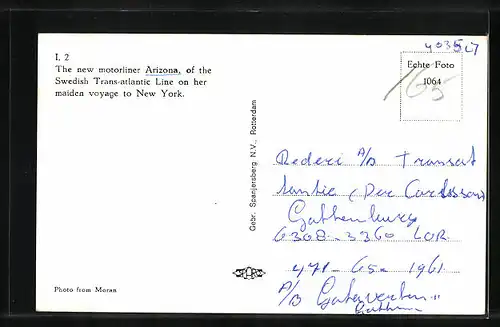 I, 2
The new motorliner Arizona, of the
Swedish Trans-atlantic Line on her
maiden voyage to New York.
Echte Foto
1064
165
Gebr. Spanjersberg N.V., Rotterdam
Rederi A/B Transat
lantic (Per Carlsson)
Gothenburg
6308 - 3360 LOR.
471 - 65 - 1961
A/B
Photo from Moran